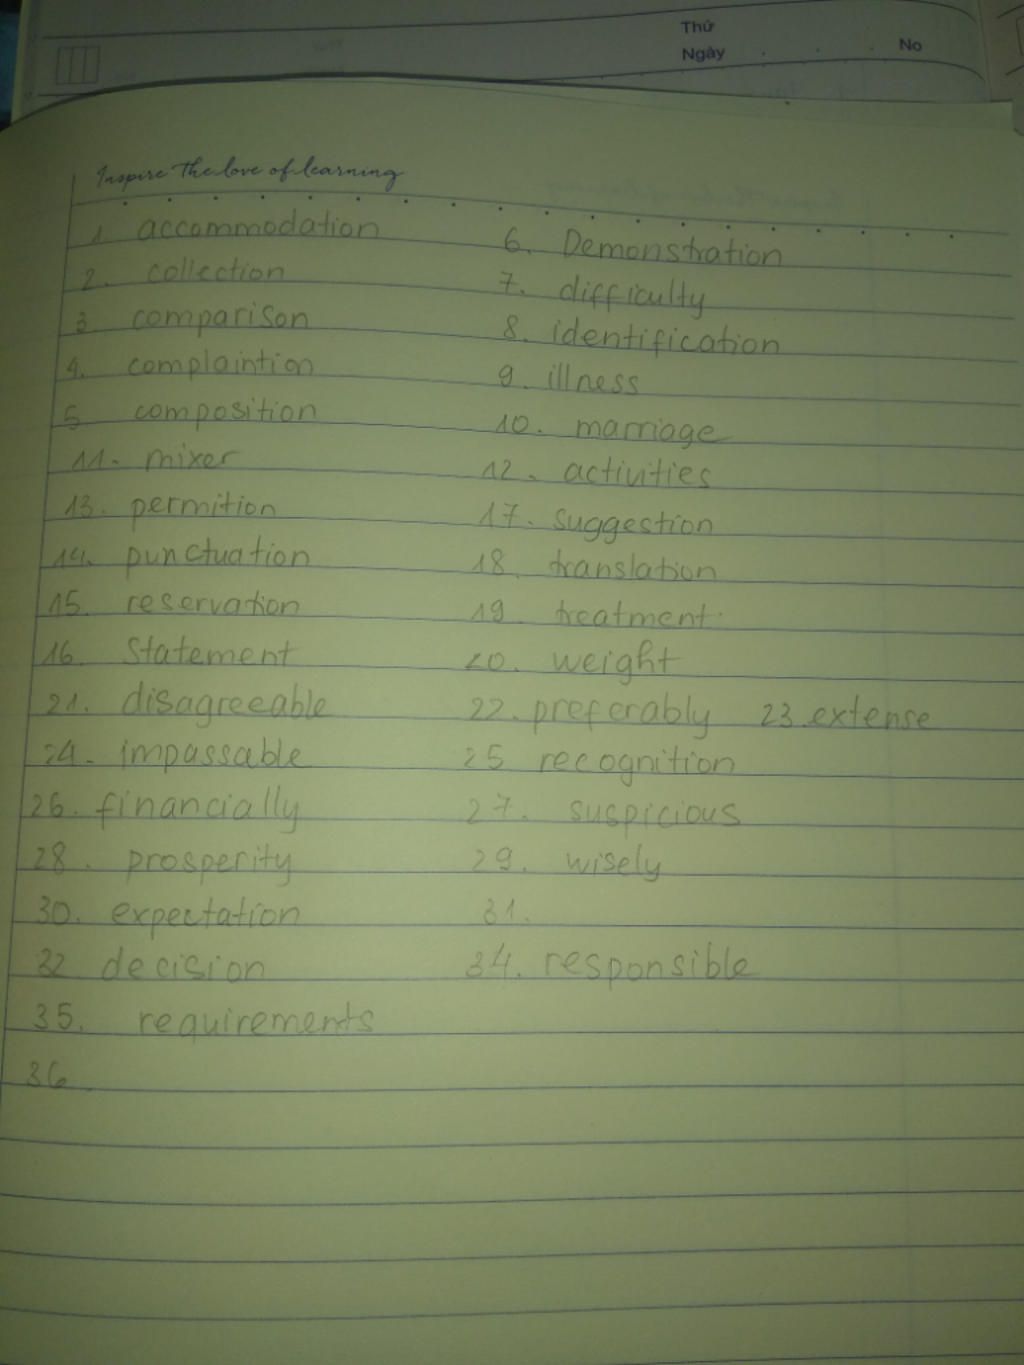 Thứ
Ngày . . . No
Inspire the love of learning
1. accommodation 6. Demonstration
2. collection 7. difficulty
3 comparison 8. identification
4. complaintion 9. illness
5 composition 10. marriage
11. mixer 12. activities
13. permition 17. suggestion
14. punctuation 18. translation
15. reservation 19. treatment.
16. Statement 20. weight
21. disagreeable 22. preferably 23. extense
24. impassable 25 recognition
26. financially 27. suspicious
28. prosperity 29. wisely
30. expectation 31.
32 decision 34. responsible
35. requirements
36